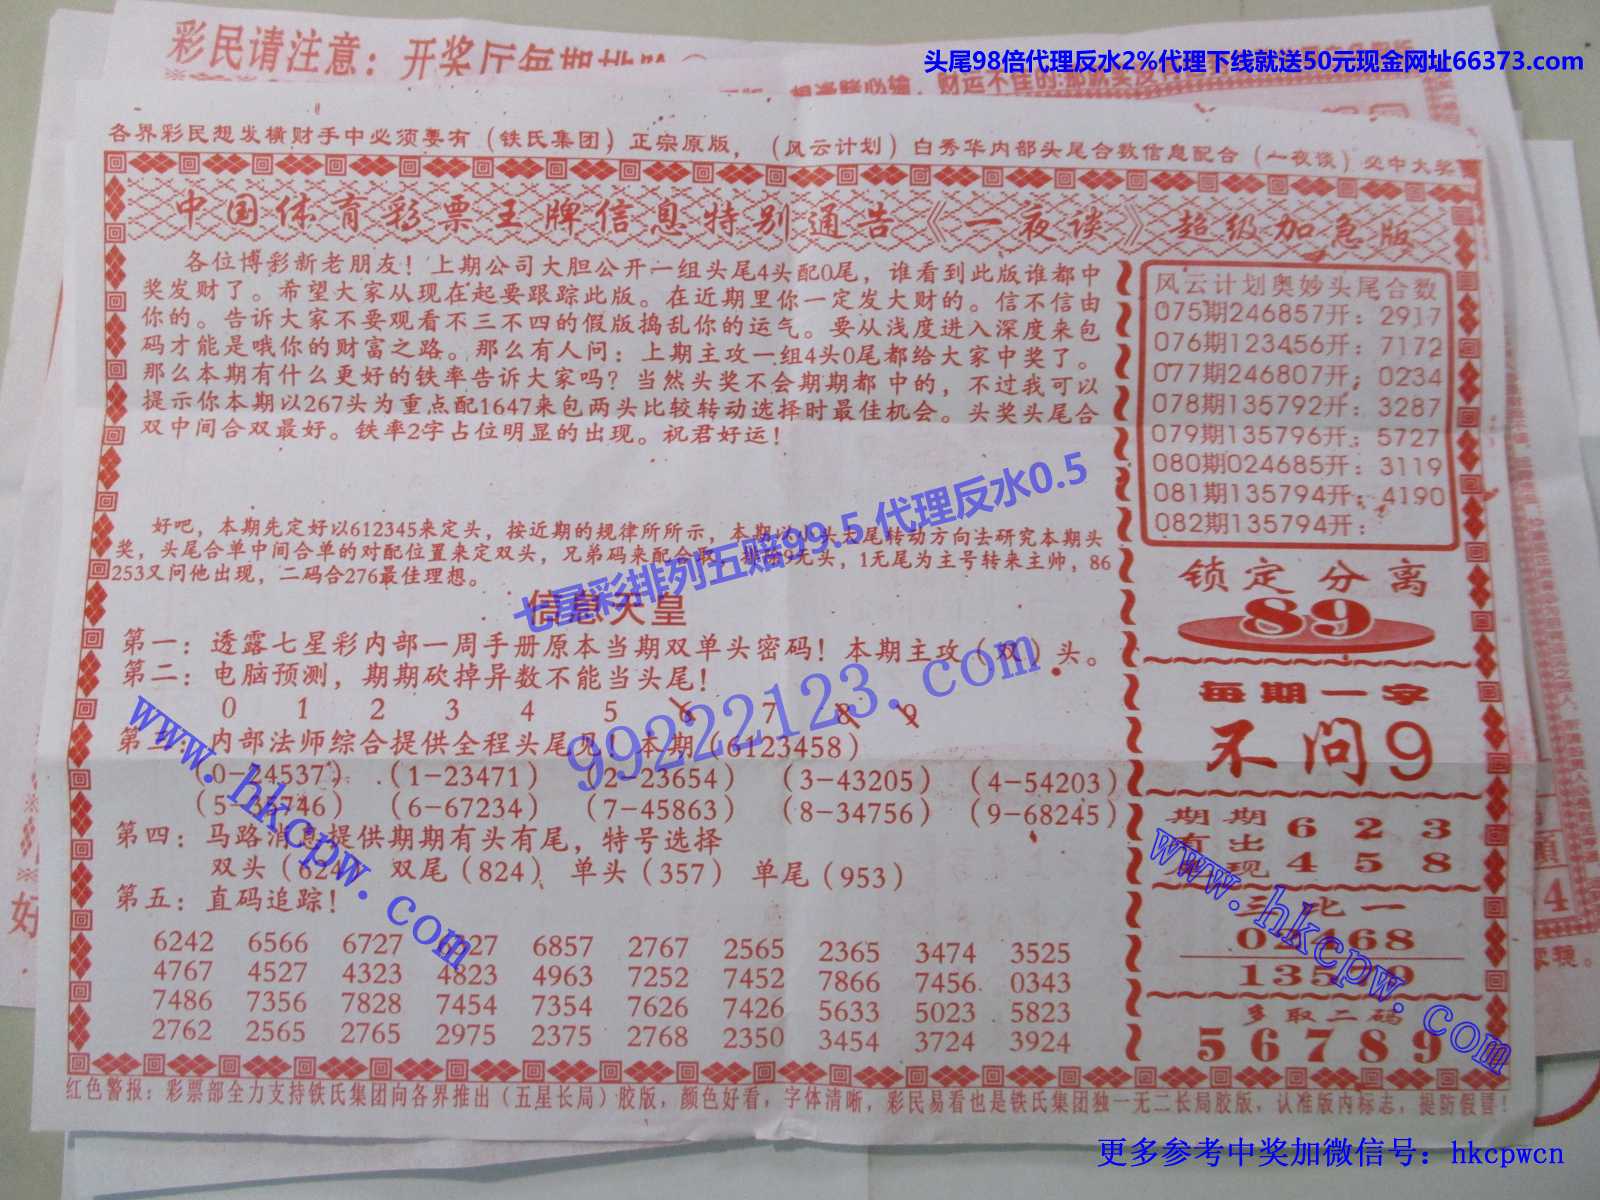 彩民请注意：开奖厅每期
头尾98倍代理反水2%代理下线就送50元现金网址66373.com
各界彩民想发横财手中必须要有（铁氏集团）正宗原版，（风云计划）白秀华内部头尾合数信息配合（一夜谈）必中大奖
中国体育彩票王牌信息特别通告《一夜谈》超级加急版
各位博彩新老朋友！上期公司大胆公开一组头尾4头配0尾，谁看到此版谁都中
奖发财了。希望大家从现在起要跟踪此版。在近期里你一定发大财的。信不信由
你的。告诉大家不要观看不三不四的假版捣乱你的运气。要从浅度进入深度来包
码才能是哦你的财富之路。那么有人问：上期主攻一组4头0尾都给大家中奖了。
那么本期有什么更好的铁率告诉大家吗？当然头奖不会期期都中的，不过我可以
提示你本期以267头为重点配1647来包两头比较转动选择时最佳机会。头奖头尾合
双中间合双最好。铁率2字占位明显的出现。祝君好运！
好吧，本期先定好以612345来定头，按近期的规律所所示，本期以小头大尾转动方向去研究本期头
奖，头尾合单中间合单的对配位置来定双头，兄弟码来配合取，排除9无头，1无尾为主号转来主帅，86
253又问他出现，二码合276最佳理想。
七星彩排列五赔99.5 代理反水0.5
信息天皇
第一：透露七星彩内部一周手册原本当期双单头密码！本期主攻（双）头。
第二：电脑预测，期期砍掉异数不能当头尾！
0 1 2 3 4 5 6 7 8 9
99222123.com
第三：内部法师综合提供全程头尾见！本期（6123458）
（0-24537）（1-23471）（2-23654）（3-43205）（4-54203）
（5-35746）（6-67234）（7-45863）（8-34756）（9-68245）
第四：马路消息提供期期有头有尾，特号选择
双头（624）双尾（824）单头（357）单尾（953）
第五：直码追踪！
6242 6566 6727 6327 6857 2767 2565 2365 3474 3525
4767 4527 4323 4823 4963 7252 7452 7866 7456 0343
7486 7356 7828 7454 7354 7626 7426 5633 5023 5823
2762 2565 2765 2975 2375 2768 2350 3454 3724 3924
www.hkcpw.com
风云计划奥妙头尾合数
075期246857开：2917
076期123456开：7172
077期246807开：0234
078期135792开：3287
079期135796开：5727
080期024685开：3119
081期135794开：4190
082期135794开：
锁定分离
89
每期一字
不问9
期期 6 2 3
有出
现 4 5 8
三比一
02468
13579
多取二码
56789
www.hkcpw.com
红色警报：彩票部全力支持铁氏集团向各界推出（五星长局）胶版，颜色好看，字体清晰，彩民易看也是铁氏集团独一无二长局胶版，认准版内标志，提防假冒！
更多参考中奖加微信号：hkcpwcn